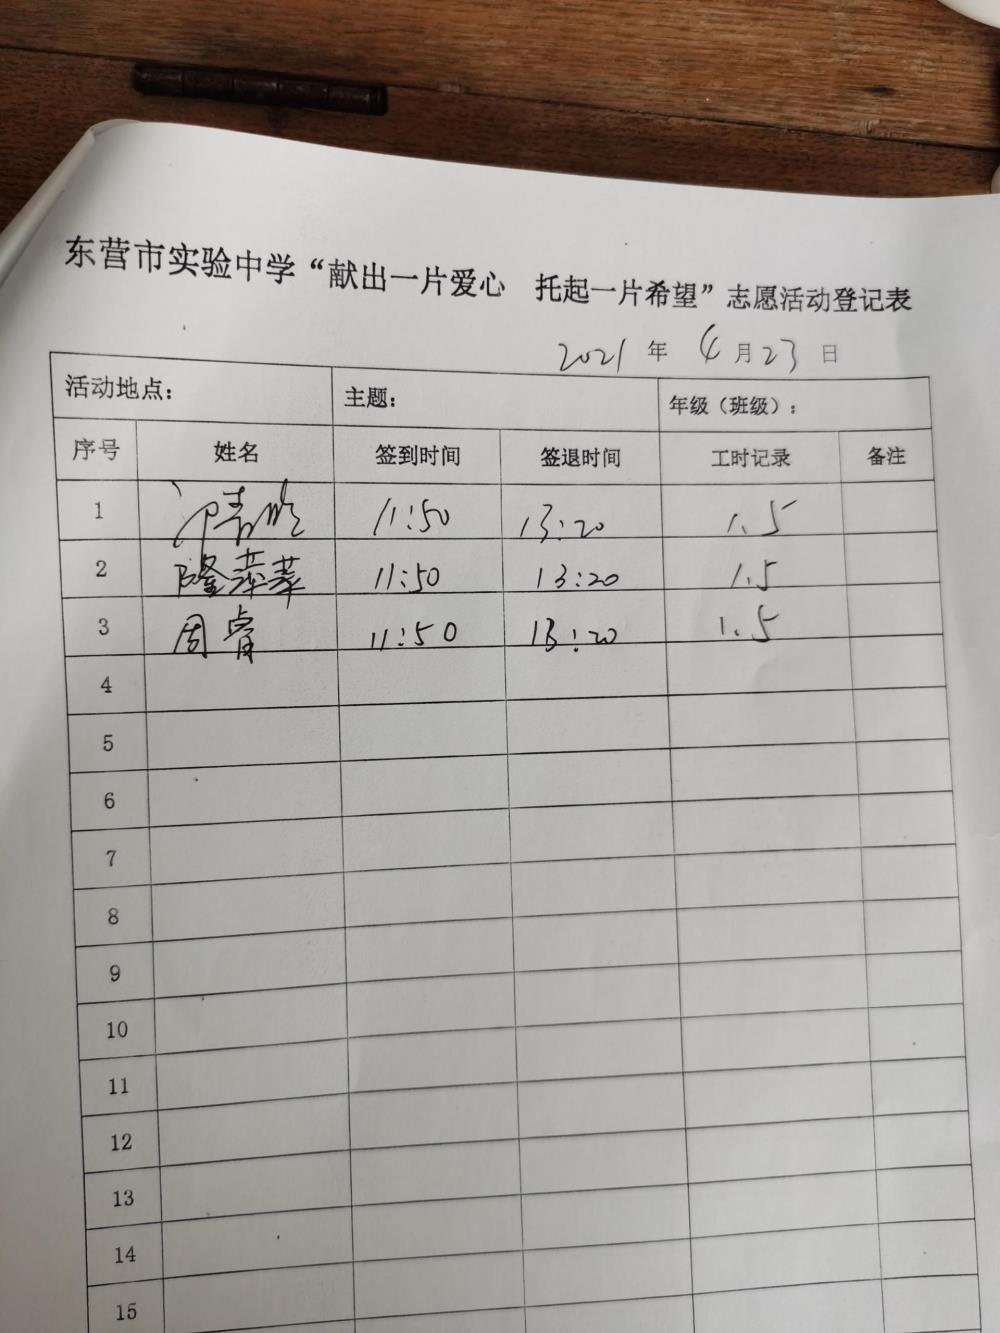 东营市实验中学“献出一片爱心 托起一片希望”志愿活动登记表
2021 年 4 月 23 日
活动地点： 主题： 年级（班级）：
序号 姓名 签到时间 签退时间 工时记录 备注
1 11:50 13:20 1.5
2 隆 11:50 13:20 1.5
3 周睿 11:50 13:20 1.5
4
5
6
7
8
9
10
11
12
13
14
15